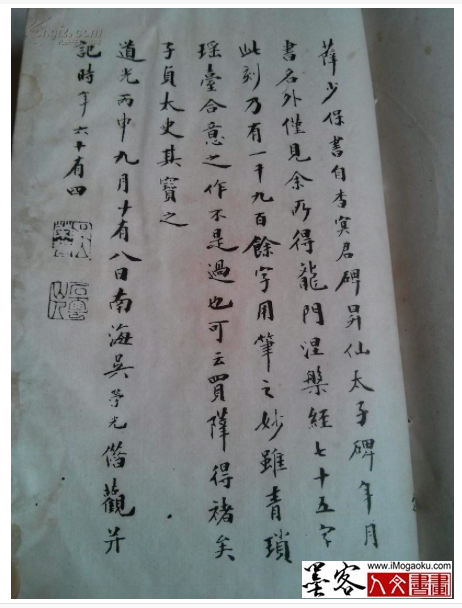 薛少保書自杳冥君碑昇仙太子碑年月
書名外僅見余所得龍門涅槃經七十五字
此刻乃有一千九百餘字用筆之妙雖青瑣
瑶臺合意之作不是過也可云買薛得褚矣
子貞太史其寳之
道光丙申九月十有八日南海吳榮光借觀并
記時年六十有四
墨客
www.iMogaoku.com
人文書畫